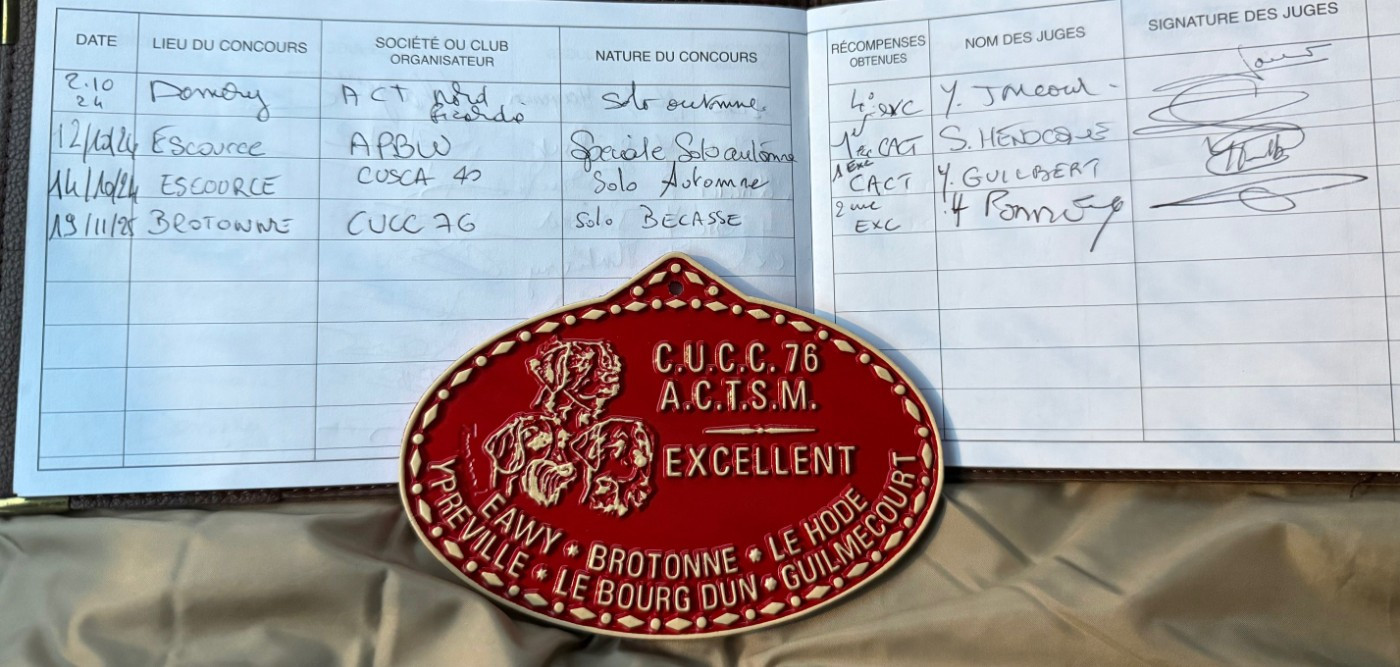 DATE LIEU DU CONCOURS SOCIÉTÉ OU CLUB ORGANISATEUR NATURE DU CONCOURS RÉCOMPENSES OBTENUES NOM DES JUGES SIGNATURE DES JUGES
2.10 24 ACT nord Solo automne. 4e exc Y.
12/10/24 Escource APBW Spéciale Solo automne 1er CACT S. HENOCQUE
14/10/24 ESCOURCE CUSCA 40 Solo Automne 1 Exc CACT Y. GUILBERT
19/11/25 BROTONNE CUCC 76 Solo BECASSE 2me EXC
C.U.C.C. 76
A.C.T.S.M.
EXCELLENT
EAWY * BROTONNE * LE HODE
YPREVILLE * LE BOURG DUN * GUILMECOURT